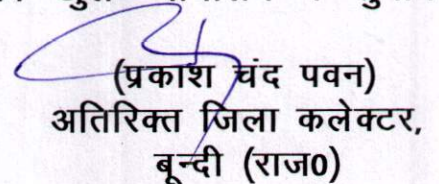 (प्रकाश चंद पवन)
अतिरिक्त जिला कलेक्टर,
बून्दी (राज0)